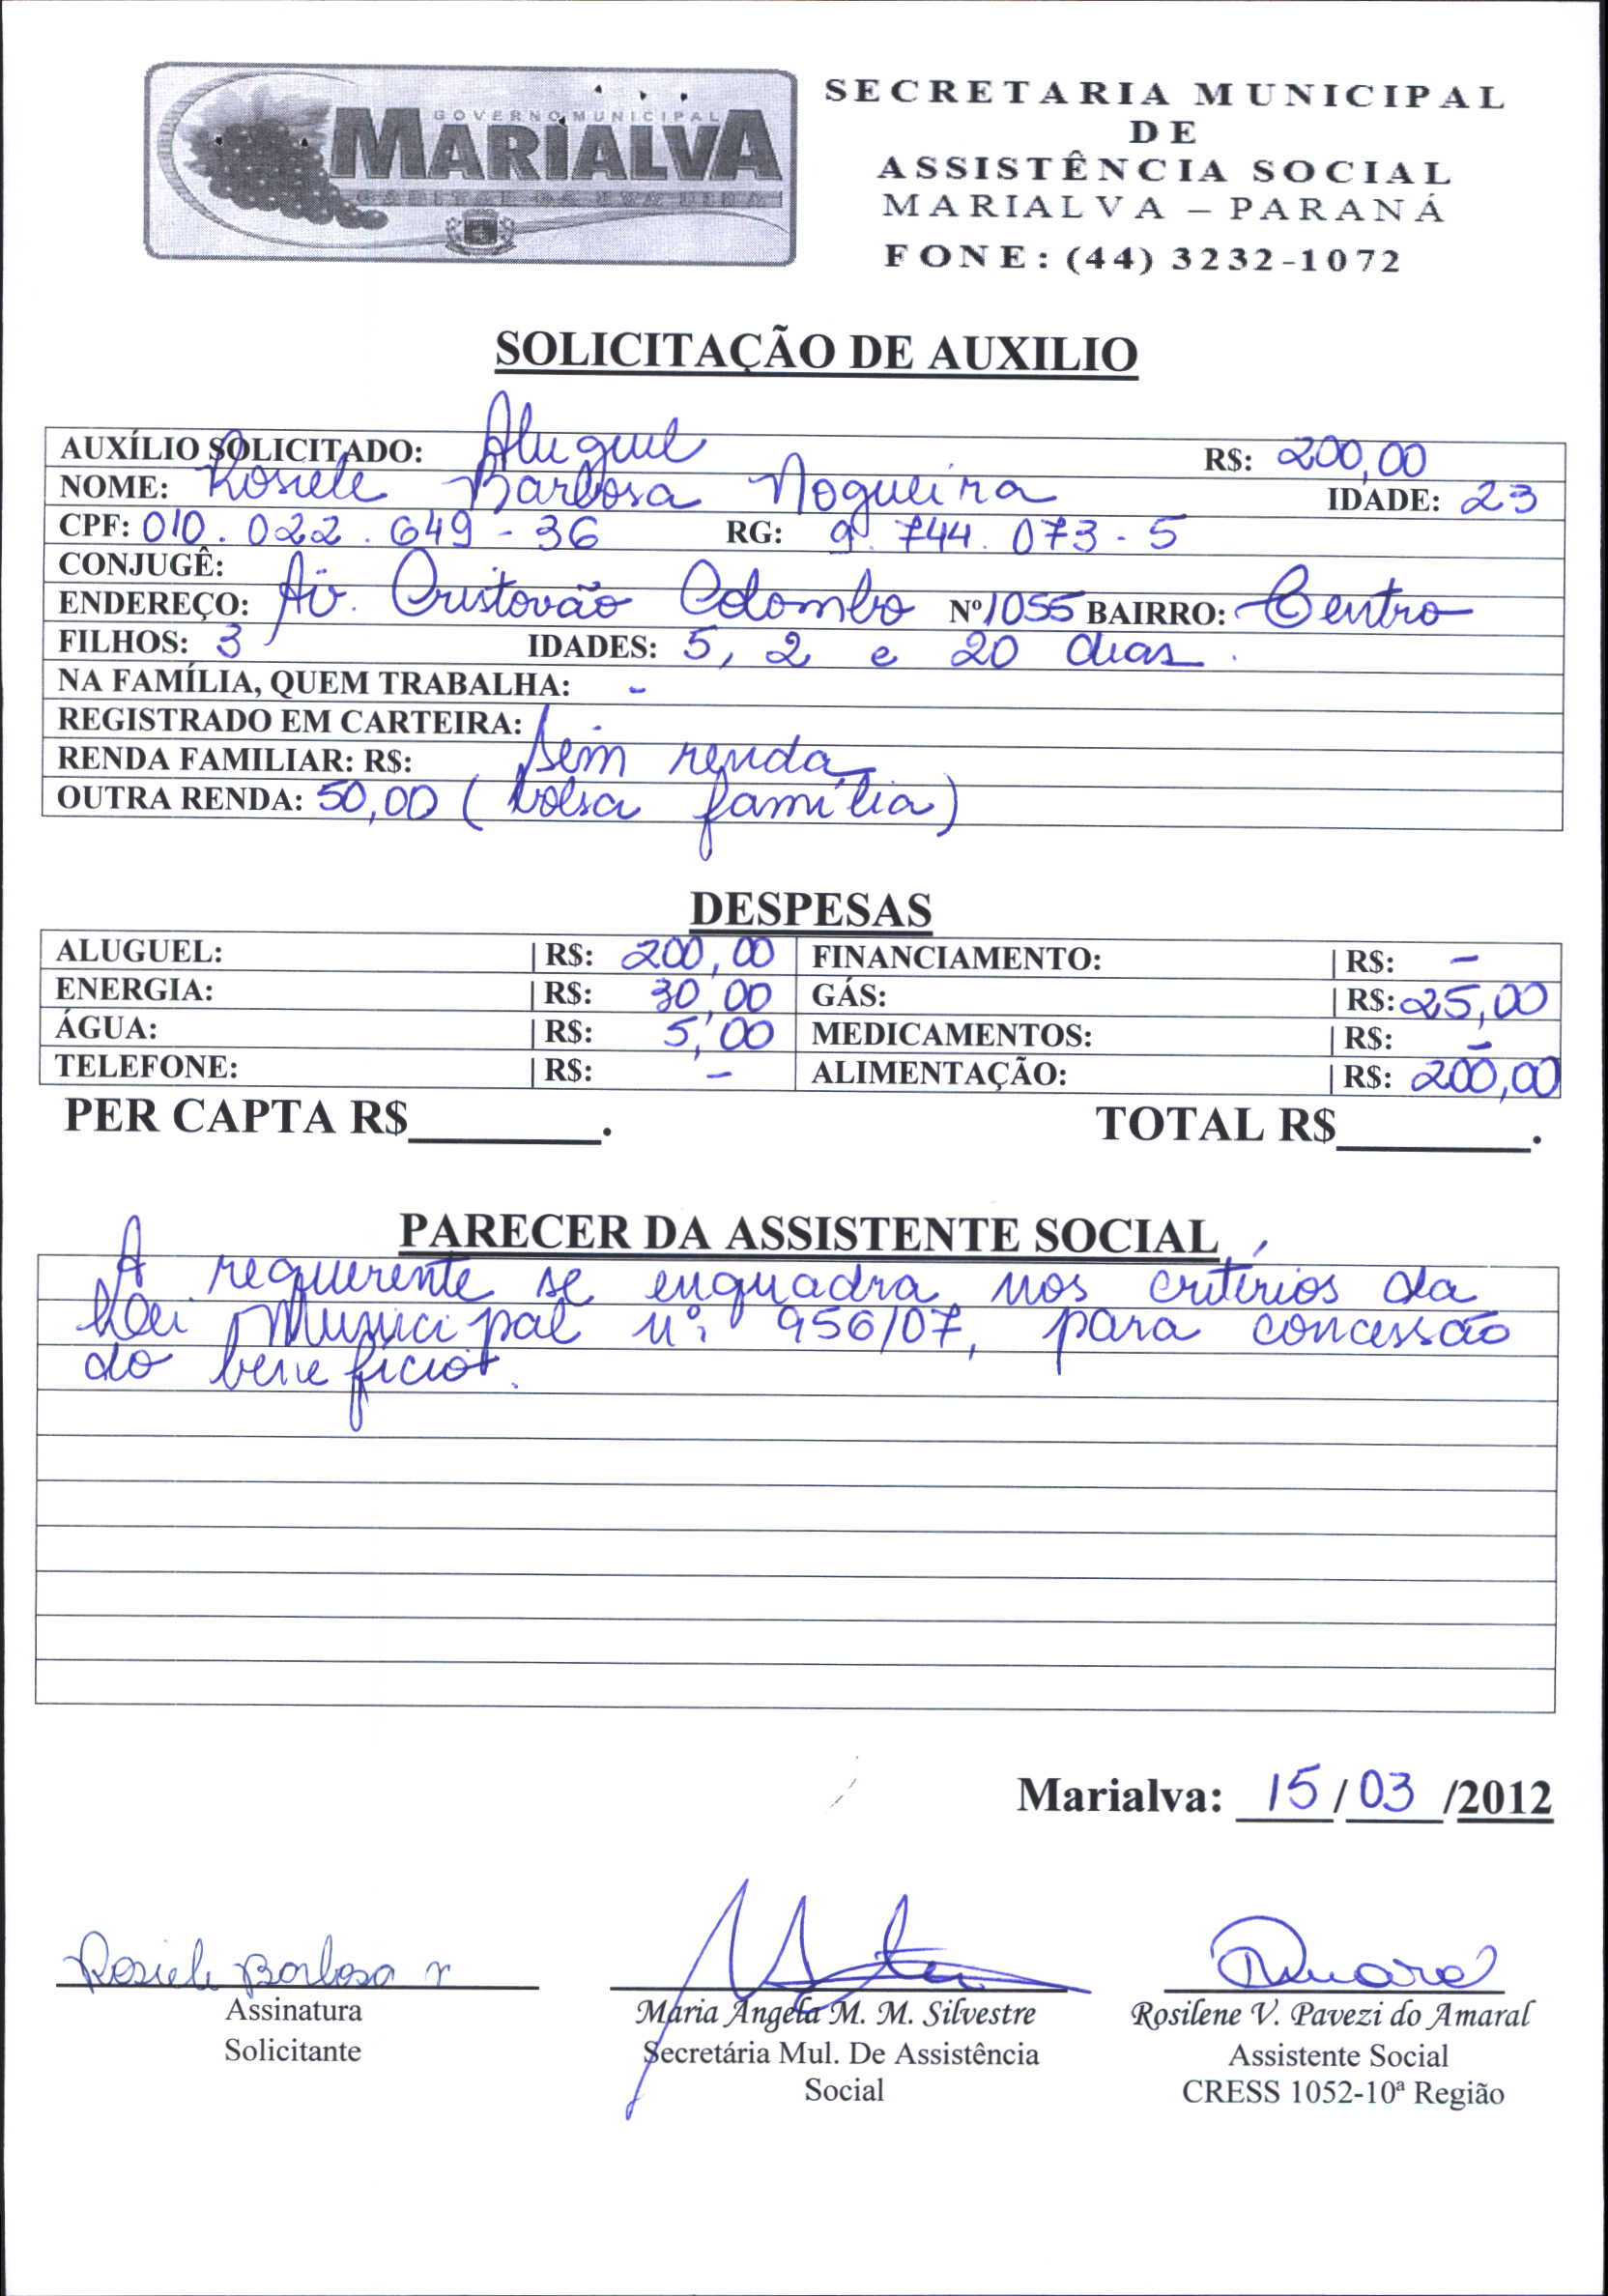 GOVERNO MUNICIPAL
MARIALVA
CAPITAL DA UVA FINA
SECRETARIA MUNICIPAL
DE
ASSISTÊNCIA SOCIAL
MARIALVA – PARANÁ
FONE: (44) 3232-1072
SOLICITAÇÃO DE AUXILIO
AUXÍLIO SOLICITADO: Aluguel R$: 200,00
NOME: Rosiele Barbosa Nogueira IDADE: 23
CPF: 010.022.649-36 RG: 9.744.073-5
CONJUGÊ:
ENDEREÇO: Av. Cristovão Colombo Nº 1055 BAIRRO: Centro
FILHOS: 3 IDADES: 5, 2 e 20 dias.
NA FAMÍLIA, QUEM TRABALHA: -
REGISTRADO EM CARTEIRA: -
RENDA FAMILIAR: R$: Sem renda
OUTRA RENDA: 50,00 (bolsa família)
DESPESAS
ALUGUEL: | R$: 200,00 FINANCIAMENTO: | R$: -
ENERGIA: | R$: 30,00 GÁS: | R$: 25,00
ÁGUA: | R$: 5,00 MEDICAMENTOS: | R$: -
TELEFONE: | R$: - ALIMENTAÇÃO: | R$: 200,00
PER CAPTA R$________. TOTAL R$________.
PARECER DA ASSISTENTE SOCIAL
A requerente se enquadra nos critérios da
Lei Municipal nº 956/07, para concessão
do benefício.
Marialva: 15/03/2012
Rosiele Barbosa n
Assinatura
Solicitante
Maria Ângela M. M. Silvestre
Secretária Mul. De Assistência
Social
Rosilene V. Pavezi do Amaral
Assistente Social
CRESS 1052-10ª Região